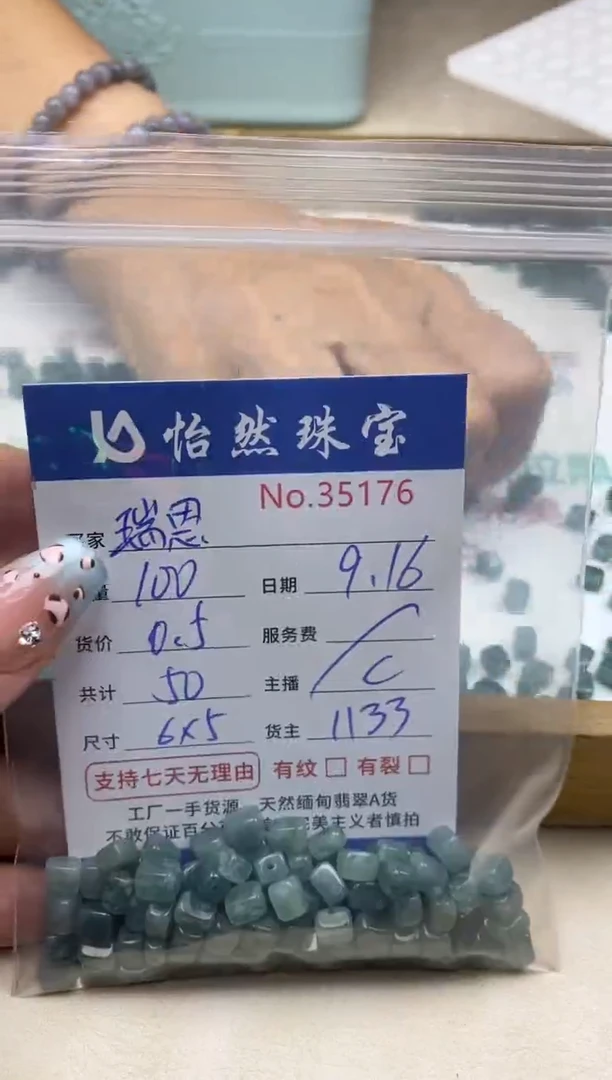 怡然珠宝
No.35176
家 瑞思
量 100 日期 9.16
货价 0.5 服务费
共计 50 主播 C
尺寸 6x5 货主 1133
支持七天无理由 有纹 有裂
工厂一手货源 天然缅甸翡翠A货
不敢保证百分 完美主义者慎拍